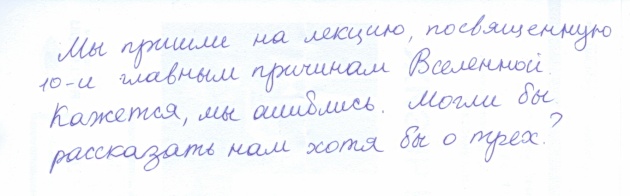 Мы пришли на лекцию, посвященную
10-и главным причинам Вселенной.
Кажется, мы ошиблись. Могли бы
рассказать нам хотя бы о трех?